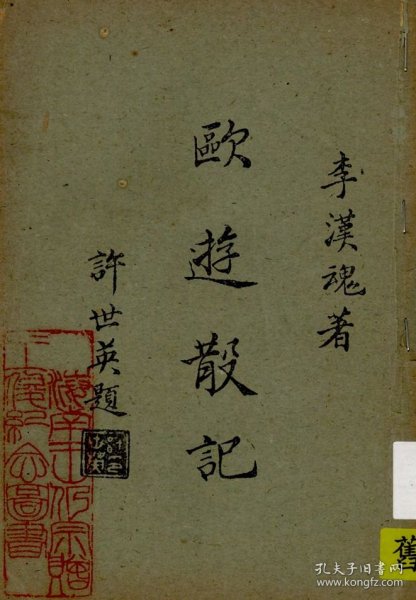 李漢魂著
歐遊散記
許世英題
舊
孔夫子旧书网
www.kongfz.com